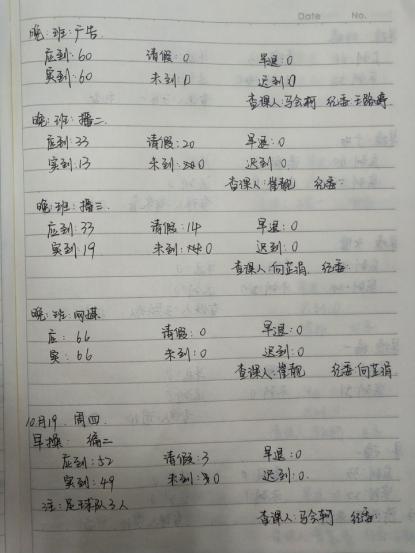 Date No.
晚:班:广告
应到:60 请假:0 早退:0
实到:60 未到:0 迟到:0
查课人:马会轲 纪委:王路
晚:班:播二
应到:33 请假:20 早退:0
实到:13 未到:0 迟到:0
查课人:崔靓 纪委:
晚:班:播三
应到:33 请假:14 早退:0
实到:19 未到:0 迟到:0
查课人:向芷涓 纪委:
晚:班:网媒
应:66 请假:0 早退:0
实:66 未到:0 迟到:0
查课人:崔靓 纪委:向芷涓
10月19. 周四
早操: 编二
应到:52 请假:3 早退:0
实到:49 未到:0 迟到:0.
注:足球队3人
查课人:马会轲 纪委: